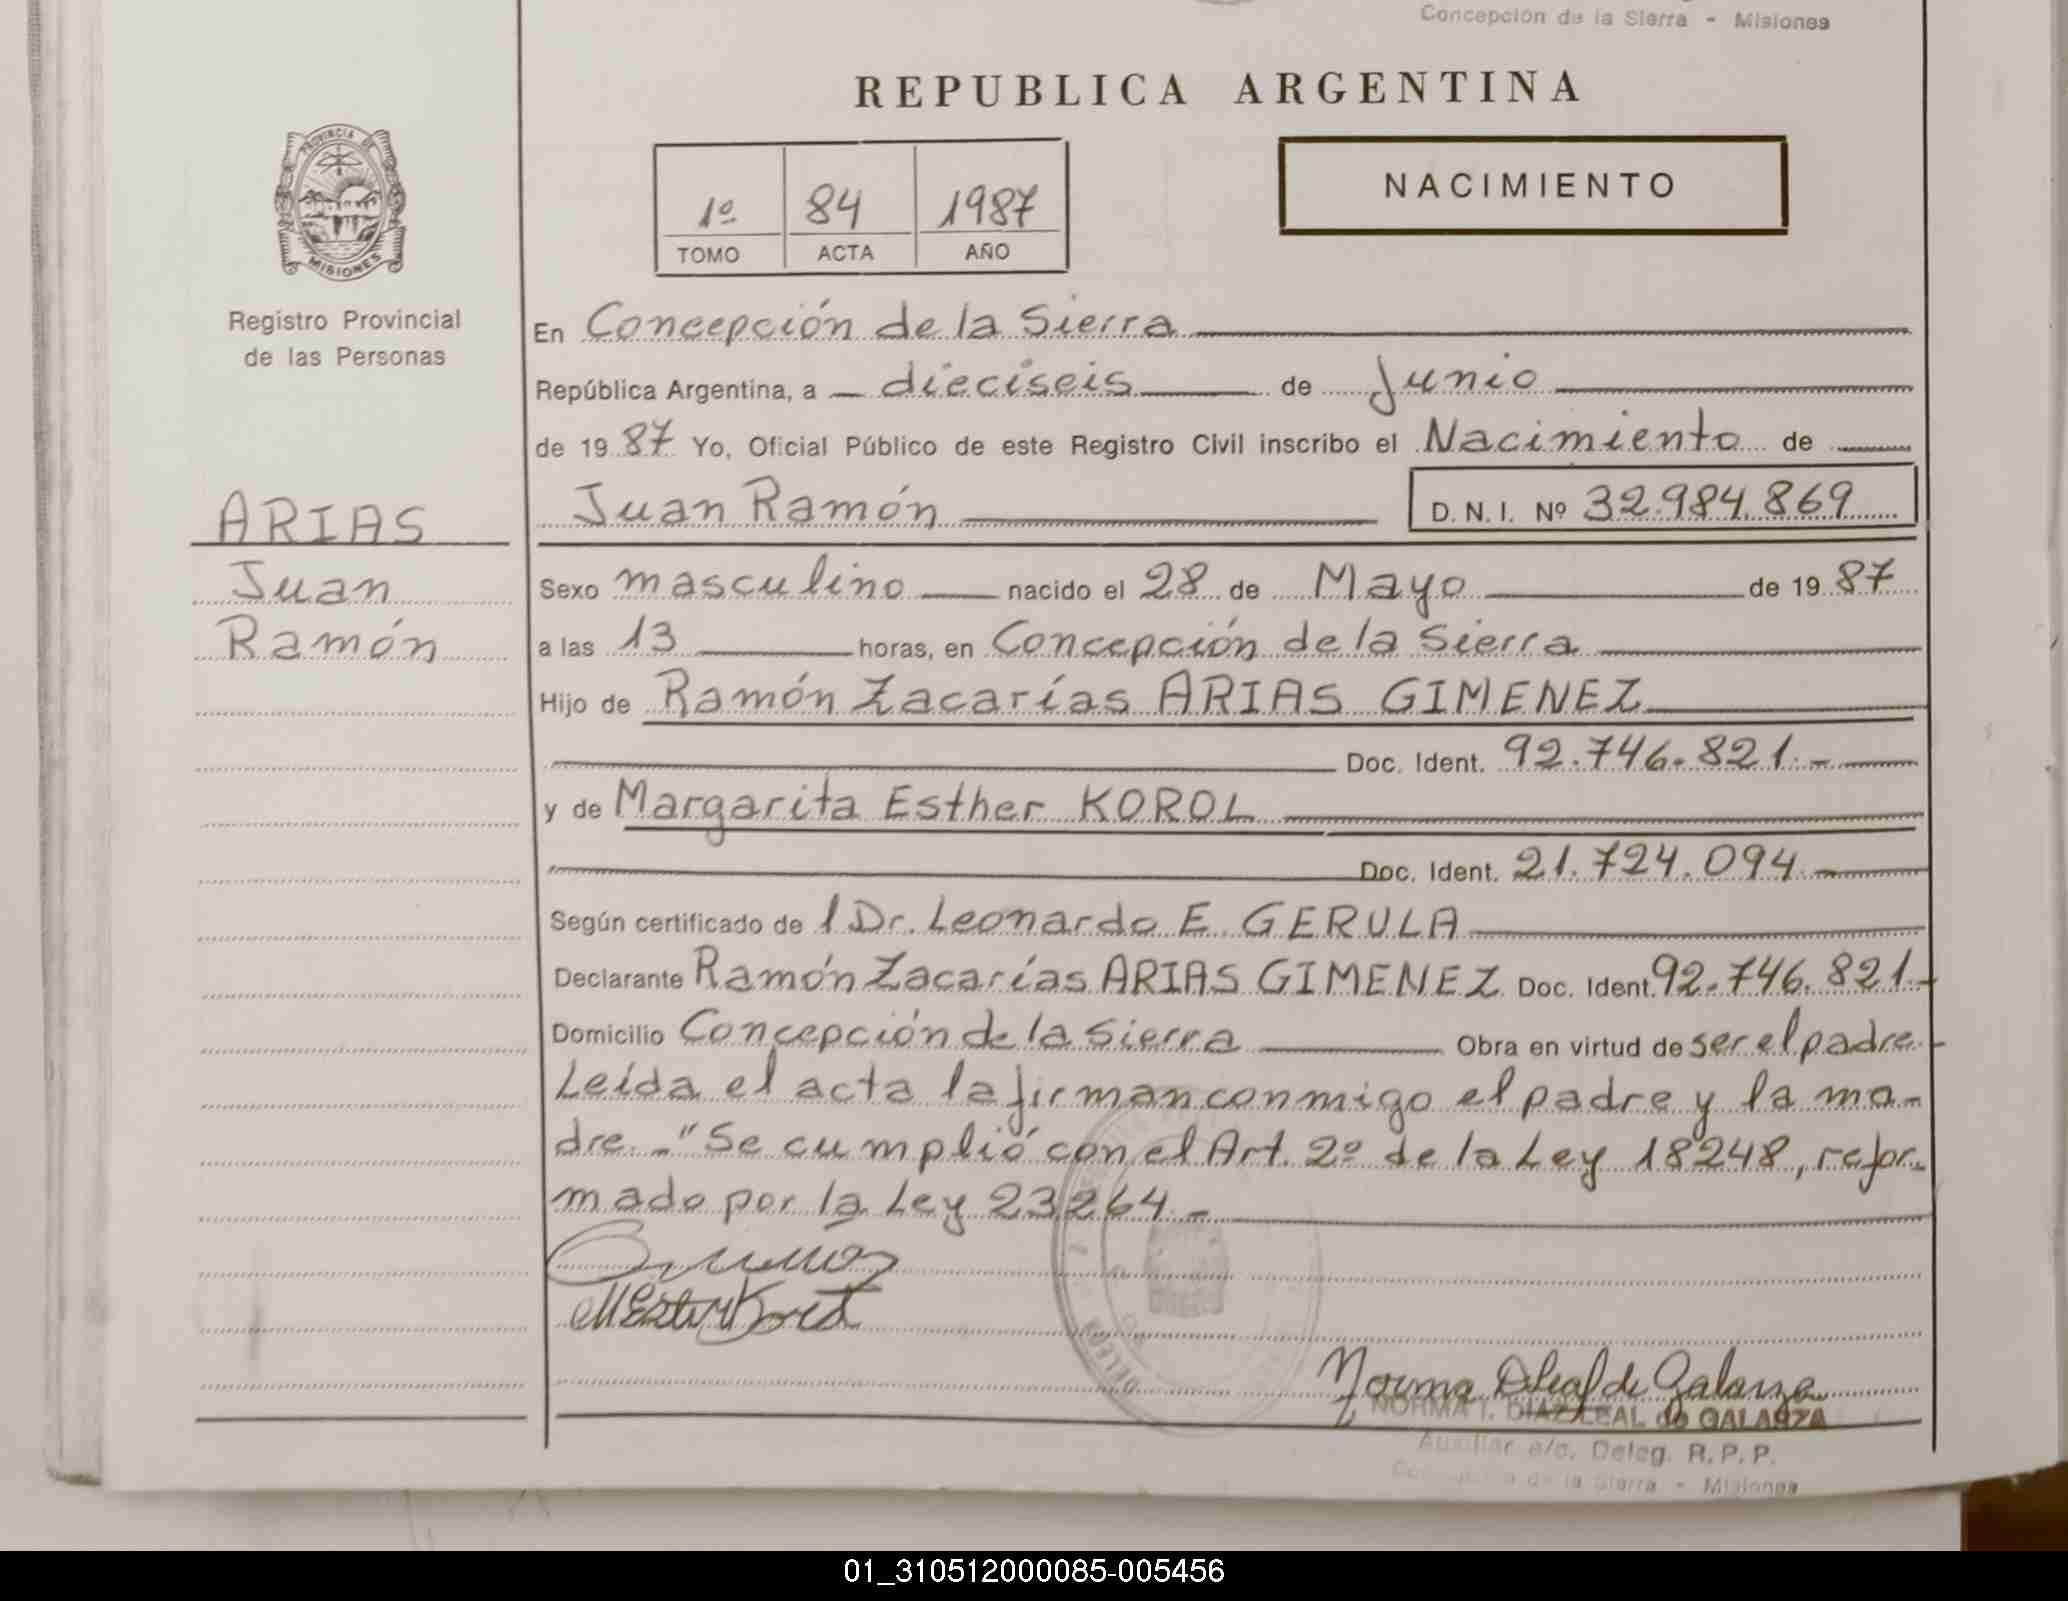 Concepción de la Sierra - Misiones
REPUBLICA ARGENTINA
PROVINCIA DE
MISIONES
1º 84 1987
TOMO ACTA AÑO
NACIMIENTO
Registro Provincial
de las Personas
En Concepción de la Sierra
República Argentina, a dieciseis de Junio
de 1987 Yo, Oficial Público de este Registro Civil inscribo el Nacimiento de
Juan Ramón D. N. I. Nº 32.984.869
ARIAS
Juan
Ramón
Sexo masculino nacido el 28 de Mayo de 1987
a las 13 horas, en Concepción de la Sierra
Hijo de Ramón Zacarías ARIAS GIMENEZ
Doc. Ident. 92.746.821.-
y de Margarita Esther KOROL
Doc. Ident. 21.724.094
Según certificado de l Dr. Leonardo E. GERULA
Declarante Ramón Zacarías ARIAS GIMENEZ Doc. Ident. 92.746.821.-
Domicilio Concepción de la Sierra Obra en virtud de ser el padre.-
Leída el acta la firman conmigo el padre y la ma-
dre.-"Se cumplió con el Art. 2º de la Ley 18248, refor-
mado por la Ley 23264.-
DELEG
NORMA I. DIAZ LEAL de GALARZA
Auxiliar a/c. Deleg. R. P. P.
Concepción de la Sierra - Misiones
01_310512000085-005456